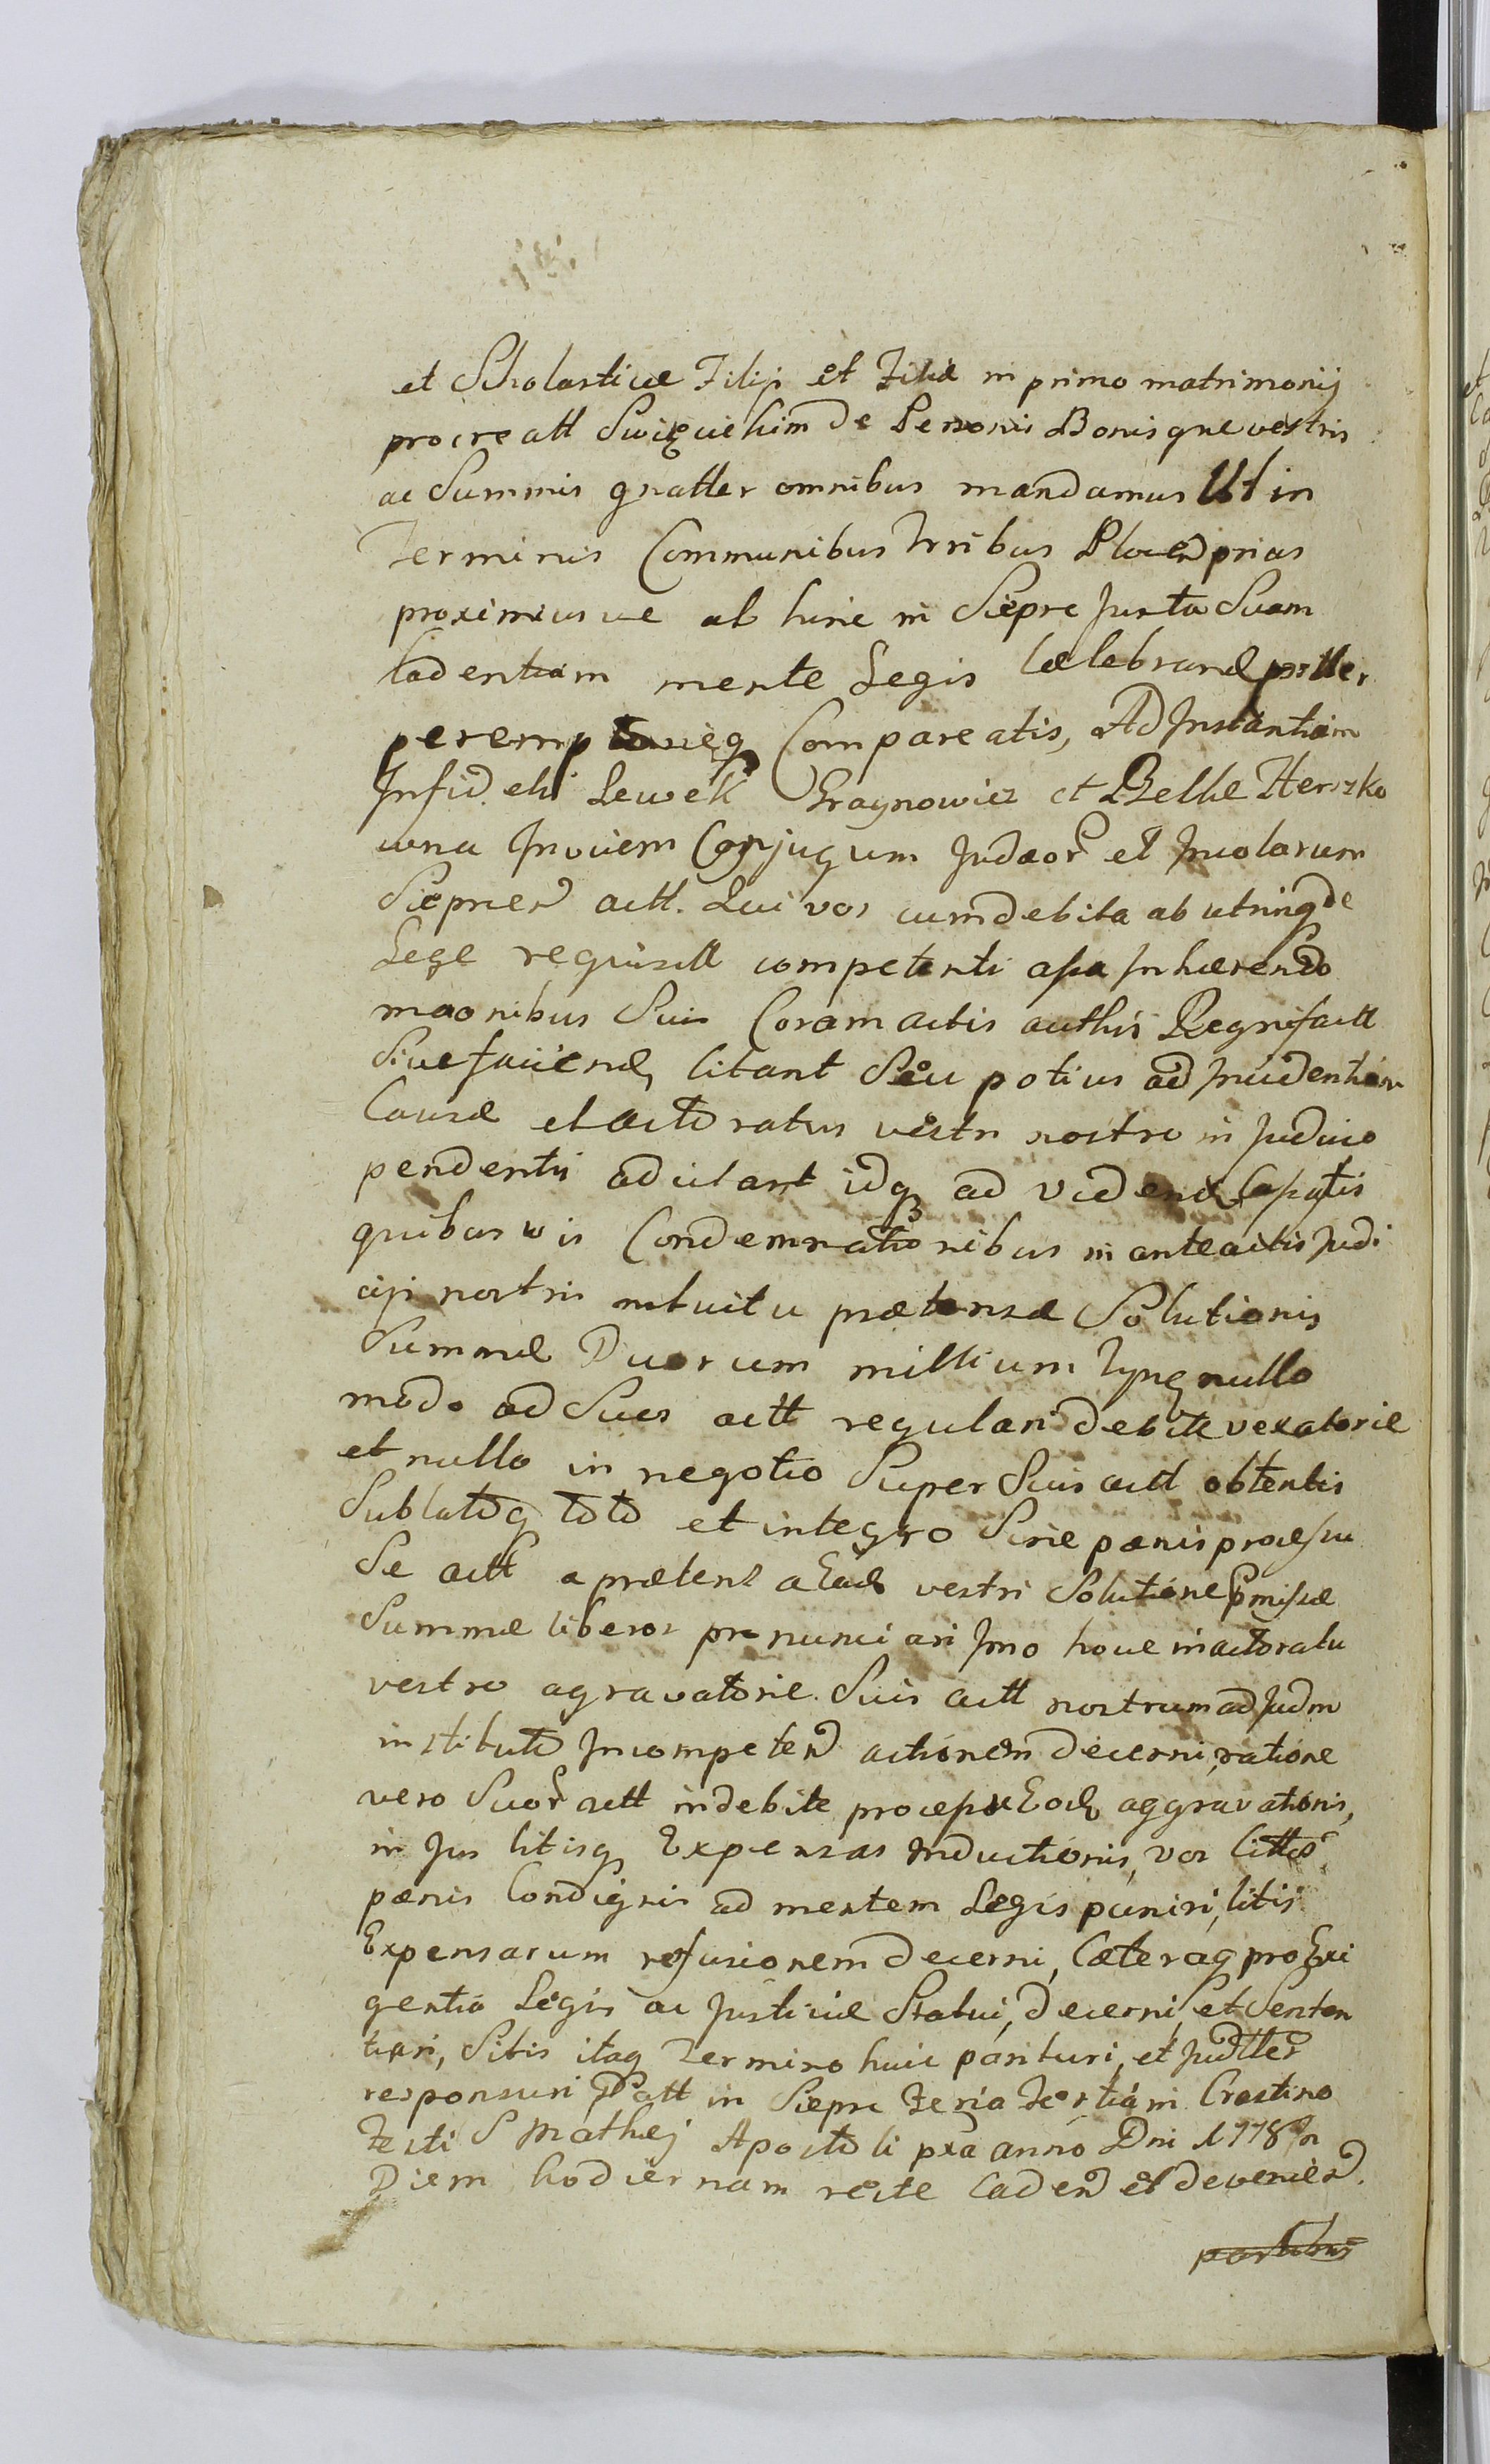 et Scholasticæ Filij et Filiæ in primo matrimonij
procreatt Swięcickim de Personis Bonisque vestris
ac Summis gnatter omnibus mandamus Ut in
Terminis Communibus Trribus Plocen prias
proximiusve ab hinc in Siepre Juxta Suam
Cadentiam mente Legis Cælebrand psller
peremptorieq Compareatis, Ad Instantiam
Infideli Lewek Graynowicz et Belke Herszko
wna Invicem Conjugum Judæor et Incolarum
Siepricen actt. Qui vos cum debita ab utrinq de
Lege requisitt competenti assa Inhærendo
maonibus Suis Coram actis authis Regni factt
Sive faciend, citant Seu potius ad Incidentiam
Causæ et actoratus vestri nostro in Judicio
pendentis adcitant idq ad vidend Cassatis
quibusvis Condemnationibus in anteactis Judi
cijs nostris intuitu prætensæ Solutionis
Summæ Duorum millium Tynf nullo
modo ad Suos actt regulari debite vexatorie
et nullo in negotio Super Suis actt obtentis
Sublatoq toto et integro Sine pænis processu
Se actt a prætens a Eade vestri Solutione pmissæ
Summæ liberos pronunciari Imo hocce in actoratu
vestro agravatorie Suis actt nostrum ad Judm
instituto Incompeten actionem decerni, ratione
vero Suor actt indebite processu Eode aggravationis,
in Jus litisq Expensas Inductionis, vos Cittos
pænis Condignis ad mentem Legis puniri, litis
Expensarum refusionem decerni, Cæteraq pro Exi
gentia Legis ac Justitiæ Statui, decerni, et Senten
tiari, Sitis itaq Termino huic parituri, et Judtler
responsuri Datt in Siepre Feria Tertia in Crastino
Festi S Mathej Apostoli pxa anno Dni 1778 in
Diem hodiernam recte Caden et devenien.
partibus